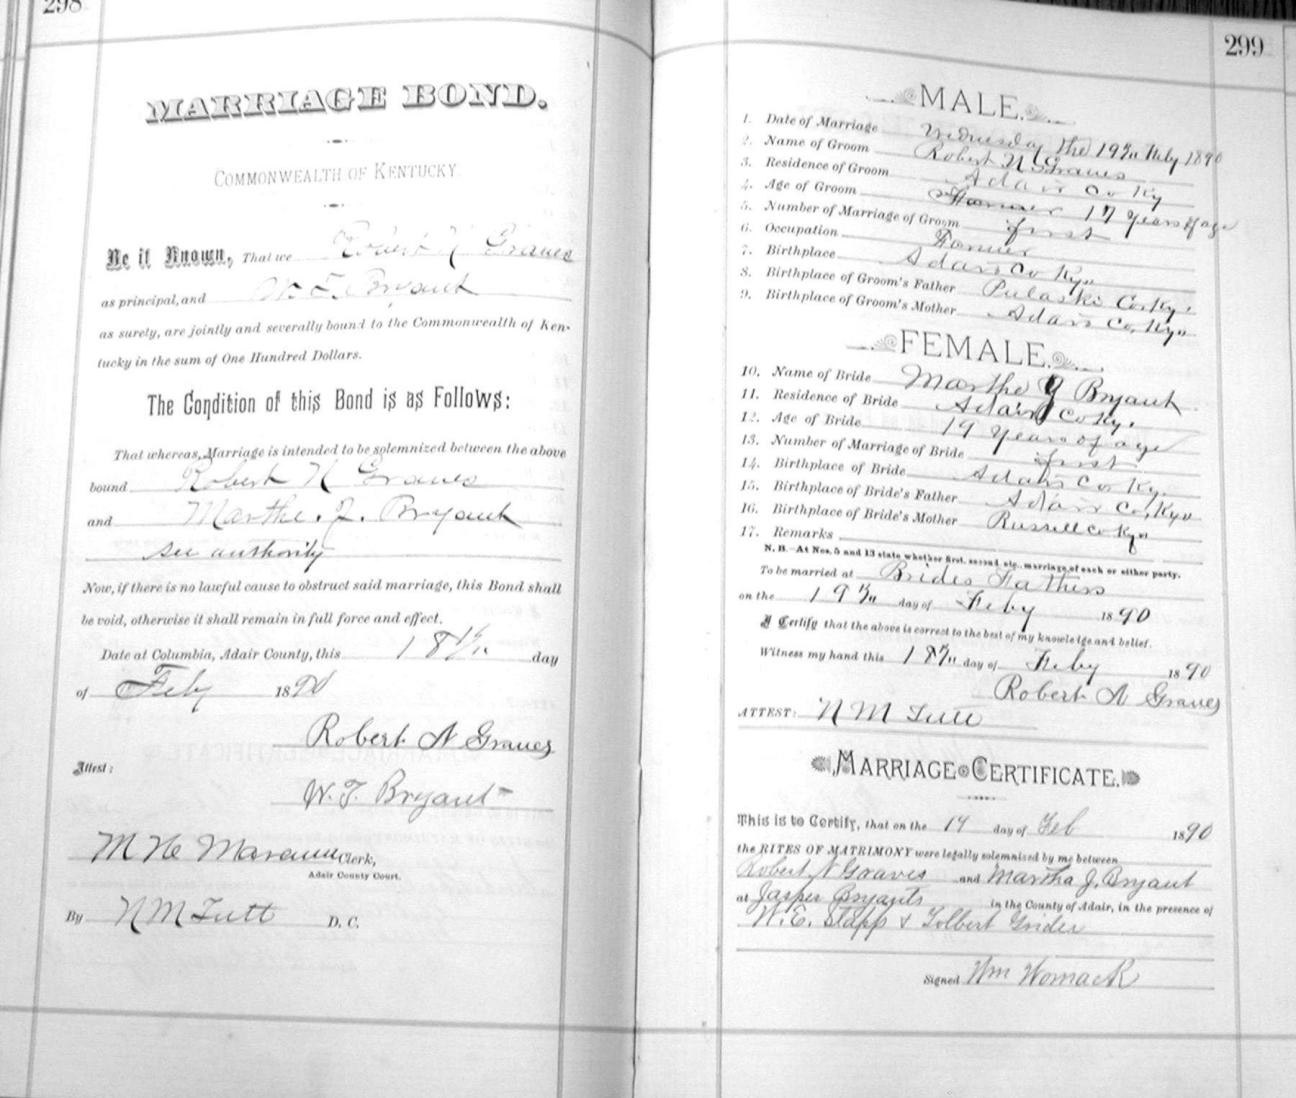 298
MARRIAGE BOND.
COMMONWEALTH OF KENTUCKY.
Be it Known, That we Robert N Graves
as principal, and W. T. Bryant
as surety, are jointly and severally bound to the Commonwealth of Ken-
tucky in the sum of One Hundred Dollars.
The Condition of this Bond is as Follows:
That whereas, Marriage is intended to be solemnized between the above
bound Robert N Graves
and Marthe. J. Bryant
see authority
Now, if there is no lawful cause to obstruct said marriage, this Bond shall
be void, otherwise it shall remain in full force and effect.
Date at Columbia, Adair County, this 18th day
of Feby 1890
Robert N Graves
Attest:
W. T. Bryant
Clerk,
Adair County Court.
By N M Tutt D. C.
299
MALE.
1. Date of Marriage Wednesday the 19th Feby 1890
2. Name of Groom Robert N Graves
3. Residence of Groom Adair Co Ky
4. Age of Groom Farmer 17 years of age
5. Number of Marriage of Groom first
6. Occupation Farmer
7. Birthplace Adair Co Ky
8. Birthplace of Groom's Father Pulaski Co, Ky.
9. Birthplace of Groom's Mother Adair Co, Ky
FEMALE.
10. Name of Bride Marthe J Bryant
11. Residence of Bride Adair Co Ky.
12. Age of Bride 19 years of age
13. Number of Marriage of Bride first
14. Birthplace of Bride Adair Co Ky.
15. Birthplace of Bride's Father Adair Co, Ky
16. Birthplace of Bride's Mother Russell Co Ky
17. Remarks
N. B.—At Nos. 5 and 13 state whether first, second, etc., marriage of each or either party.
To be married at Brides Fathers
on the 19th day of Feby 1890
I Certify that the above is correct to the best of my knowledge and belief.
Witness my hand this 18th day of Feby 1890
Robert N Graves
ATTEST: N M Tutt
MARRIAGE CERTIFICATE.
This is to Certify, that on the 19 day of Feb 1890
the RITES OF MATRIMONY were legally solemnized by me between
Robert N Graves and Martha J. Bryant
at Jasper Bryants in the County of Adair, in the presence of
W. E. Stapp & Tolbert Grider
Signed Wm Womack